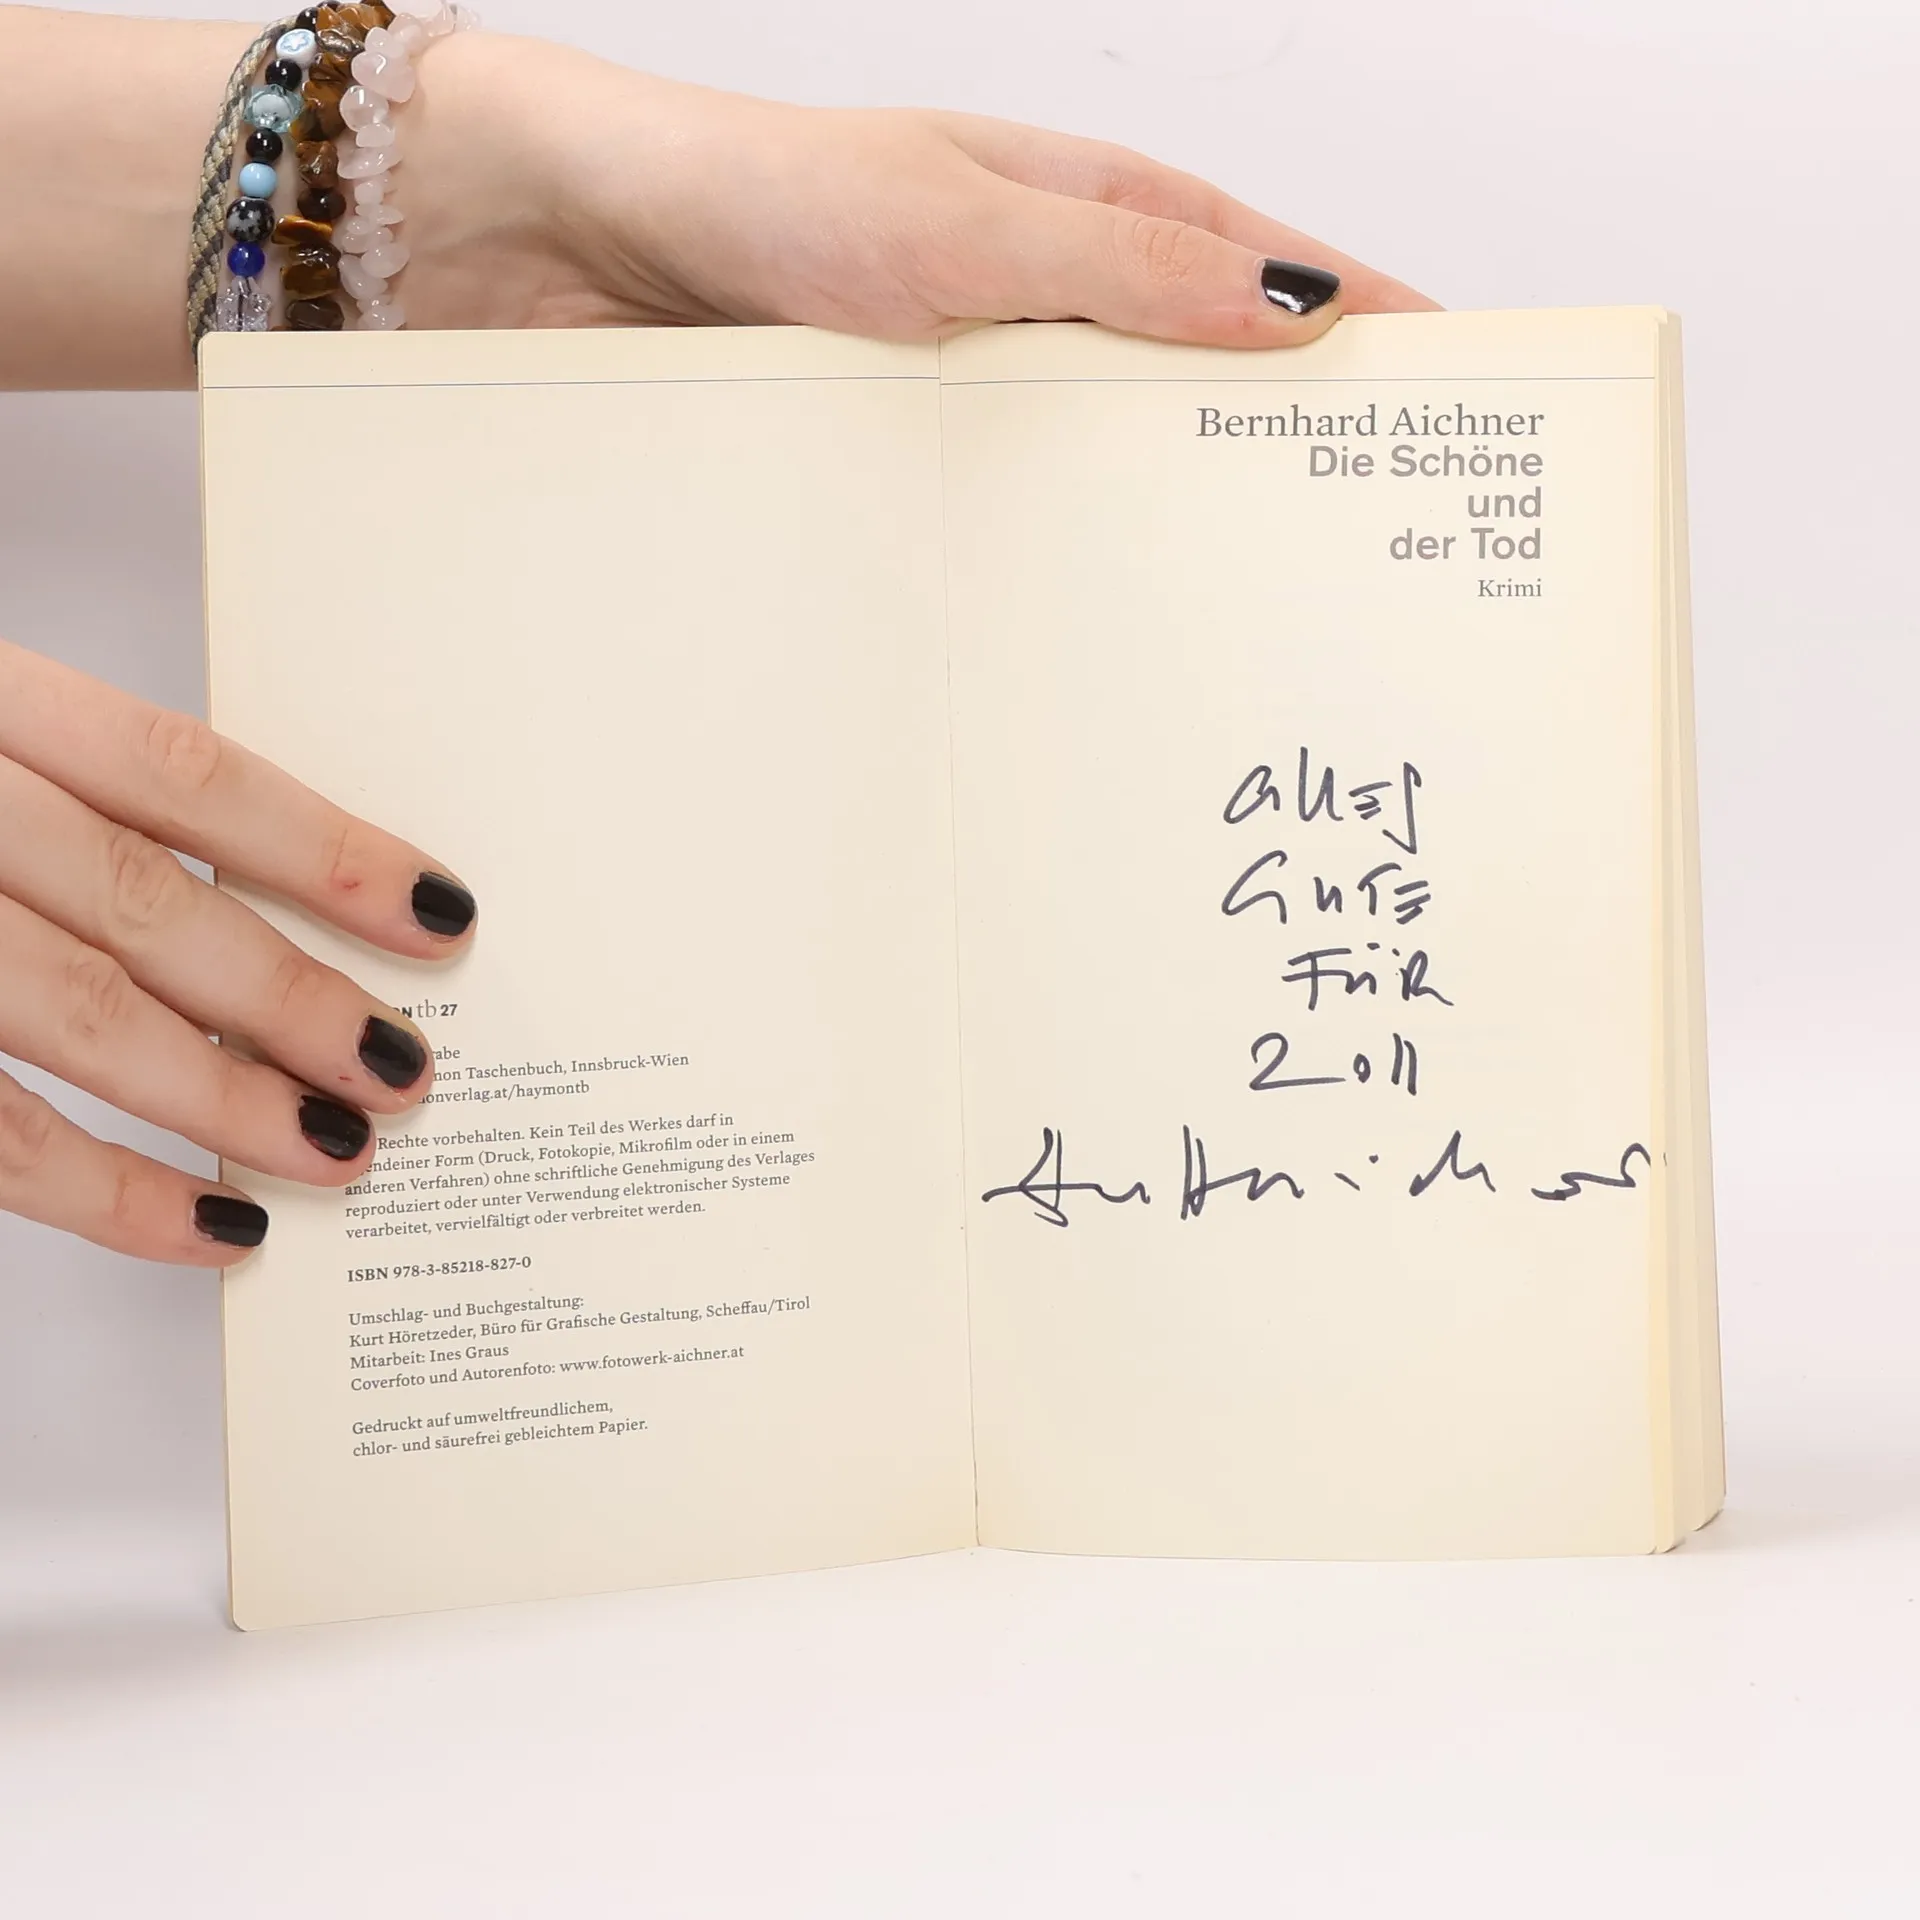 tb 27
Taschenbuch, Innsbruck-Wien
Rechte vorbehalten. Kein Teil des Werkes darf in
Form (Druck, Fotokopie, Mikrofilm oder in einem
anderen Verfahren) ohne schriftliche Genehmigung des Verlages
reproduziert oder unter Verwendung elektronischer Systeme
verarbeitet, vervielfältigt oder verbreitet werden.
ISBN 978-3-85218-827-0
Umschlag- und Buchgestaltung:
Kurt Höretzeder, Büro für Grafische Gestaltung, Scheffau/Tirol
Mitarbeit: Ines Graus
Coverfoto und Autorenfoto: www.fotowerk-aichner.at
Gedruckt auf umweltfreundlichem,
chlor- und säurefrei gebleichtem Papier.
Bernhard Aichner
Die Schöne
und
der Tod
Krimi
alles
Gute
FüR
2011